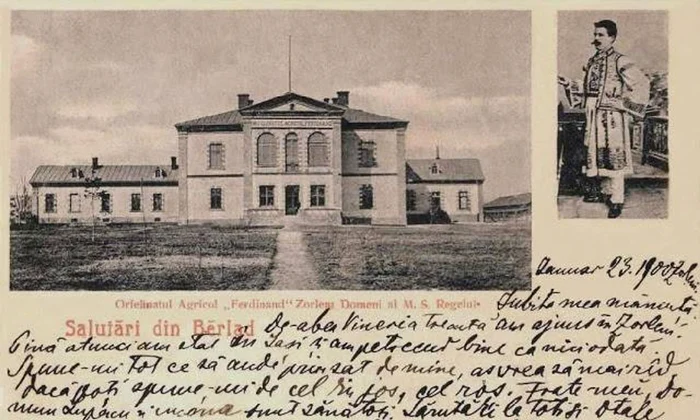 ORFELINATUL AGRICOL FERDINAND
Orfelinatul Agricol „Ferdinand" Zorleni Domeni al M. S. Regelui
Salutări din Bêrlad
Ianuar 23. 1902 Zorleni.
Iubita mea măncuță
De-abea Vineria trecută am ajuns în Zorleni.
Pină atunci am stat în Iasi și am petrecut bine ca niciodată
Spune-mi tot ce să aude pin sat de mine, as vrea să mai rid
dacă poti spune-mi de cel din jos, cel ros. Frate-meu, do-
mnu Lupascu și sunt sănătosi. Salutări la toti